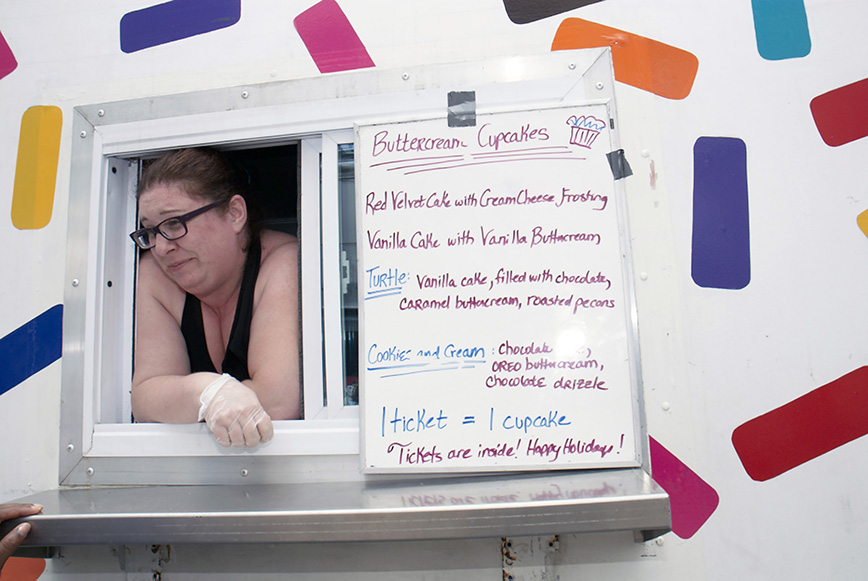 Buttercream Cupcakes
Red Velvet Cake with Cream Cheese Frosting
Vanilla Cake with Vanilla Buttercream
Turtle: Vanilla cake, filled with chocolate,
caramel buttercream, roasted pecans
Cookies and Cream: Chocolate ,
OREO buttercream,
chocolate drizzle
1 ticket = 1 cupcake
Tickets are inside! Happy Holidays!